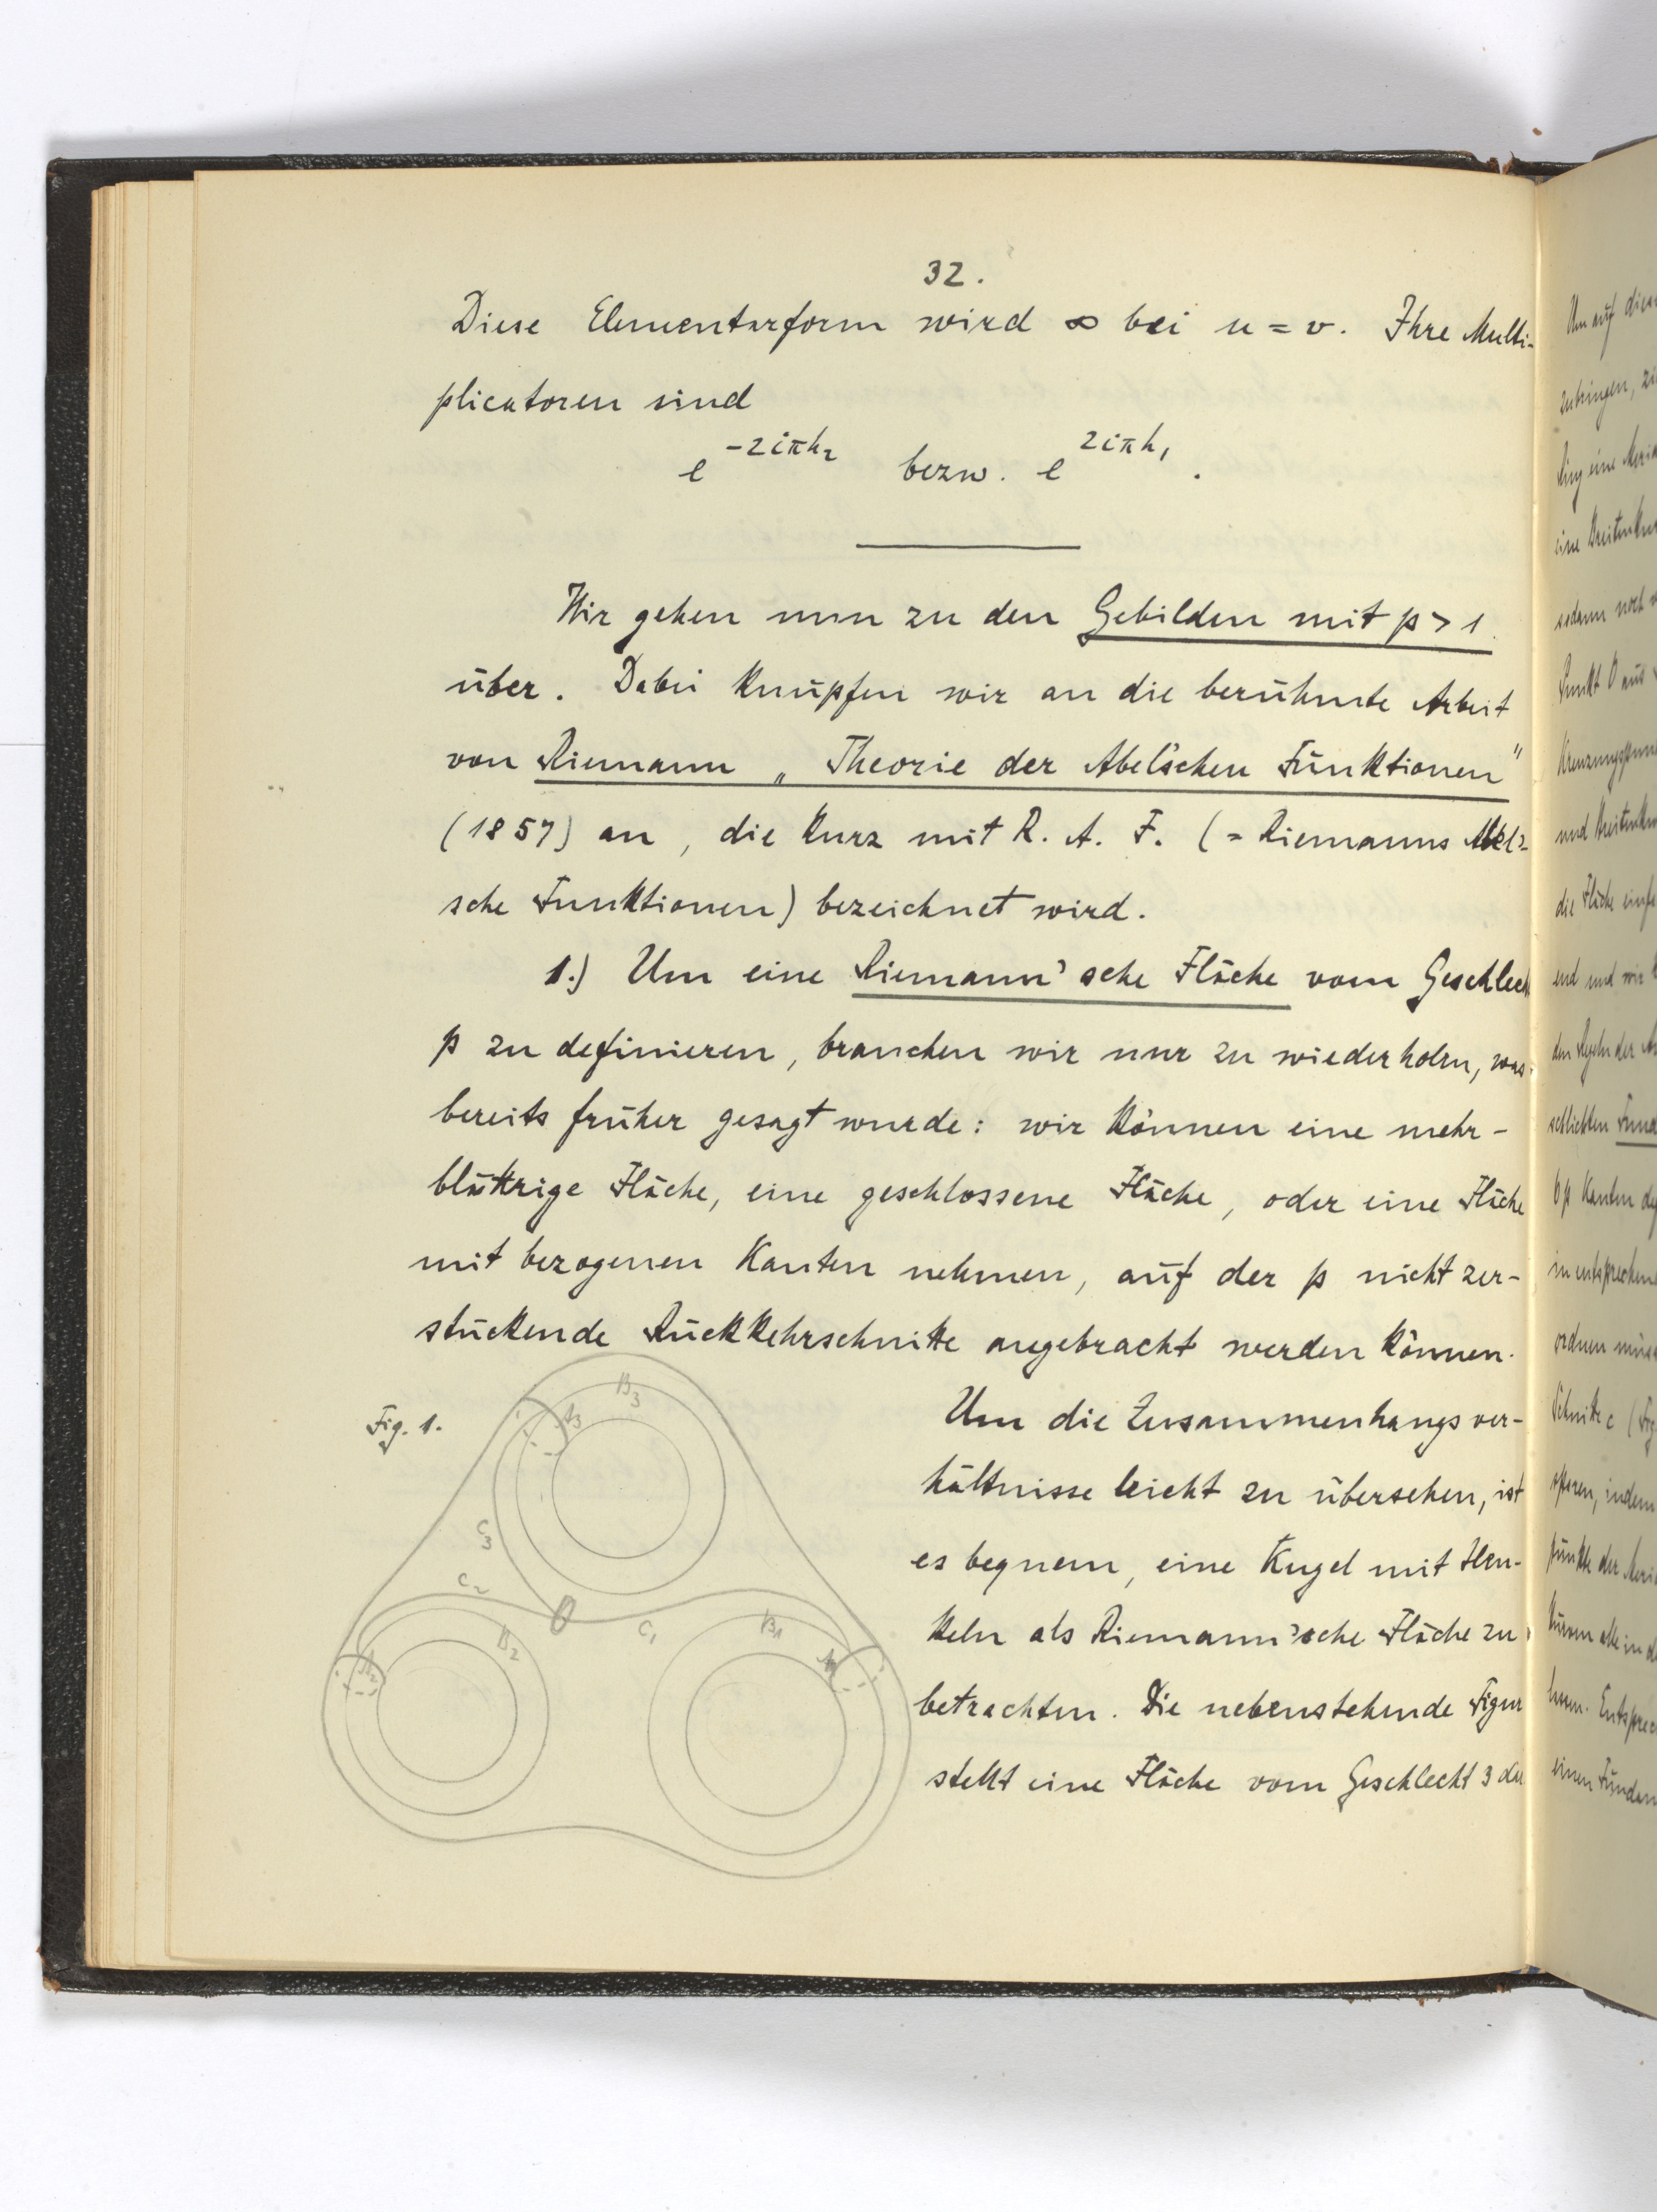 32.
Diese Elementarform wird ∞ bei u = v. Ihre Multi-
plicatoren sind
e^{-2iπh₂} bezw. e^{2iπh₁}.
Wir gehen nun zu den Gebilden mit p > 1
über. Dabei knüpfen wir an die berühmte Arbeit
von Riemann „Theorie der Abel'schen Funktionen"
(1857) an, die kurz mit R. A. F. (= Riemanns Abel'-
sche Funktionen) bezeichnet wird.
1.) Um eine Riemann'sche Fläche vom Geschlecht
p zu definieren, brauchen wir nur zu wiederholen, was
bereits früher gesagt wurde: wir können eine mehr-
blättrige Fläche, eine geschlossene Fläche, oder eine Fläche
mit bezogenen Kanten nehmen, auf der p nicht zer-
stückende Rückkehrschnitte angebracht werden können.
Fig. 1.
B₃
A₃
C₃
C₂
O
C₁
B₂
B₁
A₂
A₁
Um die Zusammenhangsver-
hältnisse leicht zu übersehen, ist
es bequem, eine Kugel mit Hen-
keln als Riemann'sche Fläche zu
betrachten. Die nebenstehende Figur
stellt eine Fläche vom Geschlecht 3 dar
Um auf diese
zubringen,
Ring eine
eine
sodann noch
Punkt O aus
und
die Fläche
end und wir
den Regeln der
schlichten
6p Kanten
in
ordnen
Schnitte c
indem
punkte der
einen